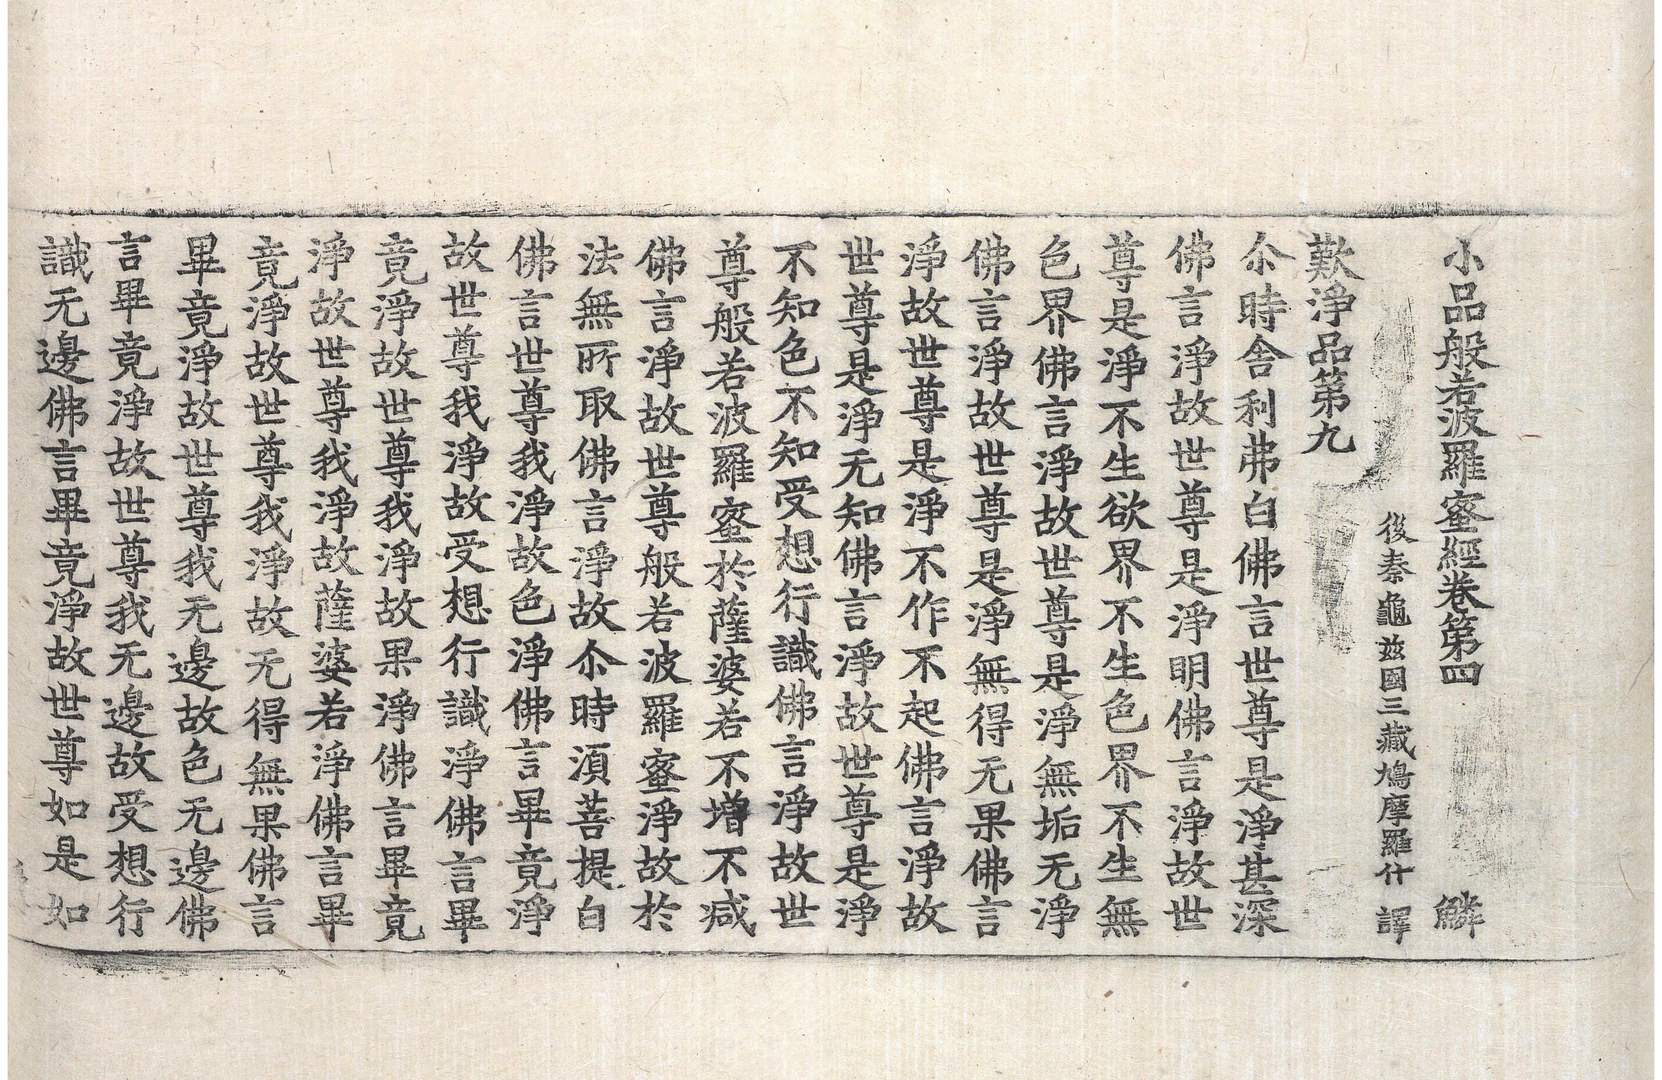 小品般若波羅蜜經卷第四 鱗
後秦龜茲國三藏鳩摩羅什 譯
歎淨品第九
尒時舍利弗白佛言世尊是淨甚深
佛言淨故世尊是淨明佛言淨故世
尊是淨不生欲界不生色界不生無
色界佛言淨故世尊是淨無垢无淨
佛言淨故世尊是淨無得无果佛言
淨故世尊是淨不作不起佛言淨故
世尊是淨无知佛言淨故世尊是淨
不知色不知受想行識佛言淨故世
尊般若波羅蜜於薩婆若不增不减
佛言淨故世尊般若波羅蜜淨故於
法無所取佛言淨故尒時須菩提白
佛言世尊我淨故色淨佛言畢竟淨
故世尊我淨故受想行識淨佛言畢
竟淨故世尊我淨故果淨佛言畢竟
淨故世尊我淨故薩婆若淨佛言畢
竟淨故世尊我淨故无得無果佛言
畢竟淨故世尊我无邊故色无邊佛
言畢竟淨故世尊我无邊故受想行
識无邊佛言畢竟淨故世尊如是如